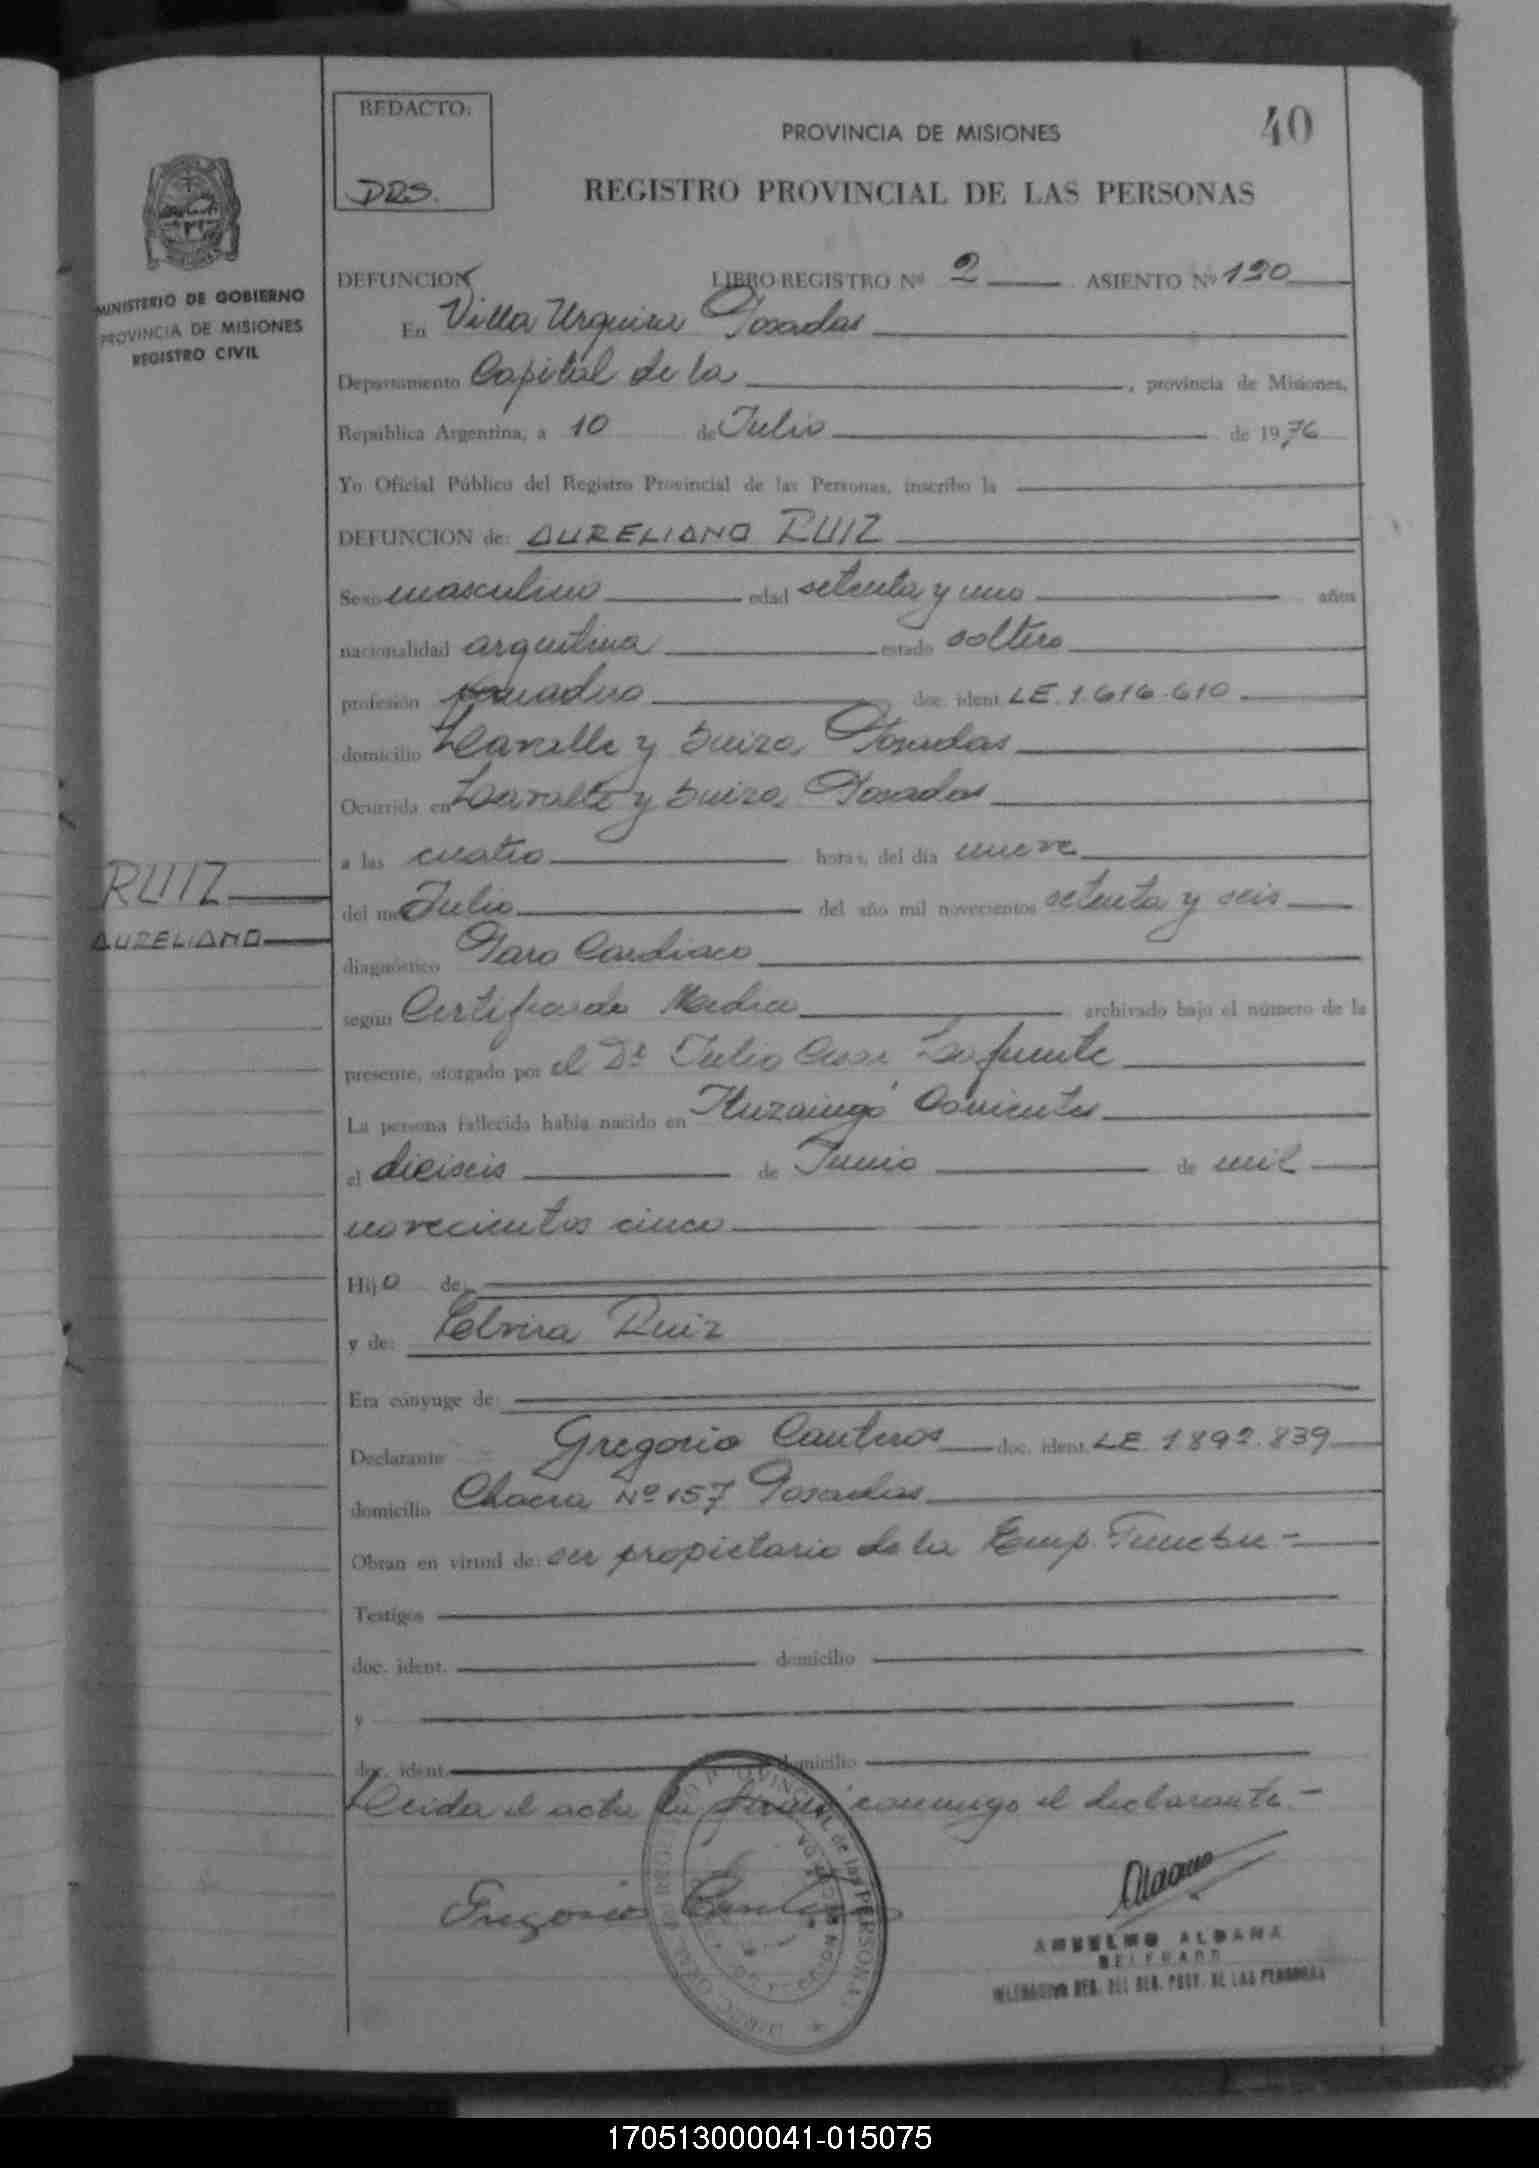 REDACTO:
DRS.
40
PROVINCIA DE MISIONES
REGISTRO PROVINCIAL DE LAS PERSONAS
MINISTERIO DE GOBIERNO
PROVINCIA DE MISIONES
REGISTRO CIVIL
DEFUNCION LIBRO-REGISTRO Nº 2 ASIENTO Nº 120
En Villa Urquiza Posadas
Departamento Capital de la , provincia de Misiones,
República Argentina, a 10 de Julio de 1976
Yo Oficial Público del Registro Provincial de las Personas, inscribo la
DEFUNCION de: AURELIANO RUIZ
Sexo masculino edad setenta y uno años
nacionalidad argentina estado soltero
profesión doc. ident. LE. 1.616.610
domicilio Lavalle y Suiza, Posadas
Ocurrida en Lavalle y Suiza, Posadas
a las cuatro horas, del día nueve
RUIZ
AURELIANO
del mes Julio del año mil novecientos setenta y seis
diagnóstico Paro Cardiaco
según Certificado Medico archivado bajo el número de la
presente, otorgado por el Dr Julio Cesar Lafuente
La persona fallecida había nacido en Ituzaingó Corrientes
el dieciseis de Junio de mil
novecientos cinco
Hijo de:
y de: Elvira Ruiz
Era cónyuge de:
Declarante Gregorio Canteros doc. ident. LE 1892.839
domicilio Chacra Nº 157 Posadas
Obran en virtud de: ser propietario de la Emp. Funebre -
Testigos
doc. ident. domicilio
y
doc. ident. domicilio
Leida el acta la firma conmigo el declarante. -
Gregorio Canteros
ANSELMO ALDANA
DELEGADO
170513000041-015075